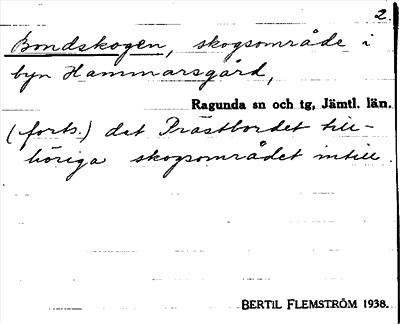 2.
Bondskogen, skogsområde i
byn Hammarsgård,
Ragunda sn och tg, Jämtl. län.
(forts.) det Prästbordet till-
höriga skogsområdet intill.
BERTIL FLEMSTRÖM 1938.